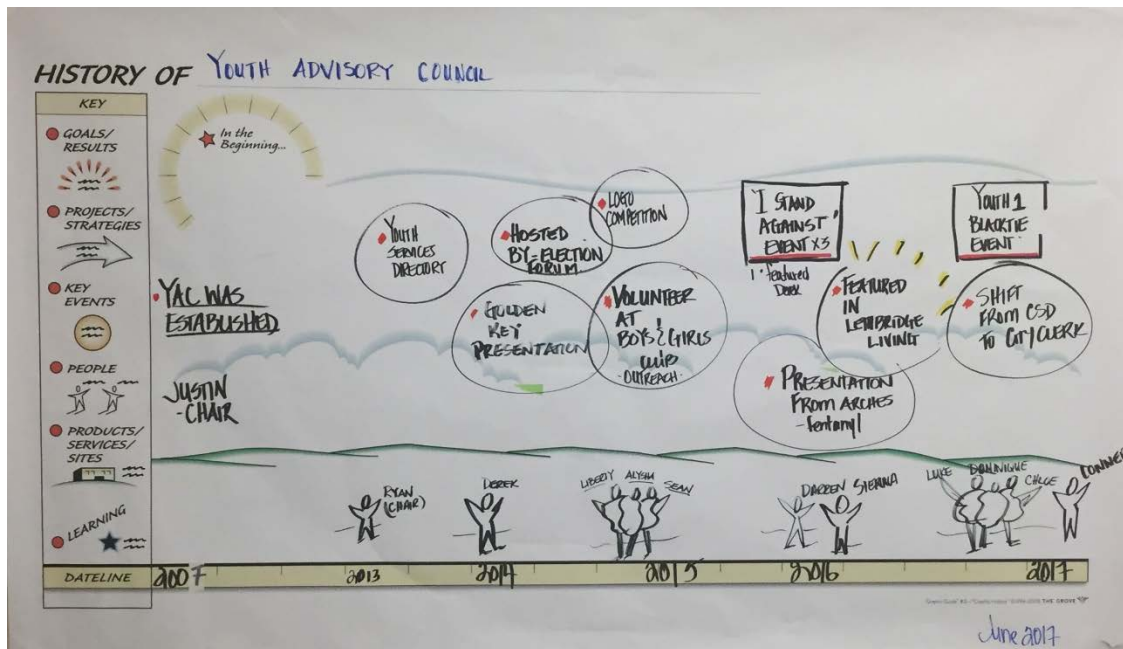 HISTORY OF YOUTH ADVISORY COUNCIL
KEY
GOALS/
RESULTS
PROJECTS/
STRATEGIES
KEY
EVENTS
PEOPLE
PRODUCTS/
SERVICES/
SITES
LEARNING
DATELINE
In the
Beginning...
YAC WAS
ESTABLISHED
JUSTIN
-CHAIR
YOUTH
SERVICES
DIRECTORY
HOSTED
BY-ELECTION
FORUM
LOGO
COMPETITION
GOLDEN
KEY
PRESENTATION
VOLUNTEER
AT
BOYS & GIRLS
CLUB
-OUTREACH-
I STAND
AGAINST
EVENT X3
featured
Derek
FEATURED
IN
LETHBRIDGE
LIVING
PRESENTATION
FROM ARCHES
-fentanyl
YOUTH 1
BLACKTIE
EVENT
SHIFT
FROM CSD
TO CITY CLERK
RYAN
(CHAIR)
DEREK
LIBERTY ALYSHA SEAN
DARREN SIENNA
LUKE DOMINIQUE CHLOE
CONNER
2007 2013 2014 2015 2016 2017
THE GROVE
June 2017